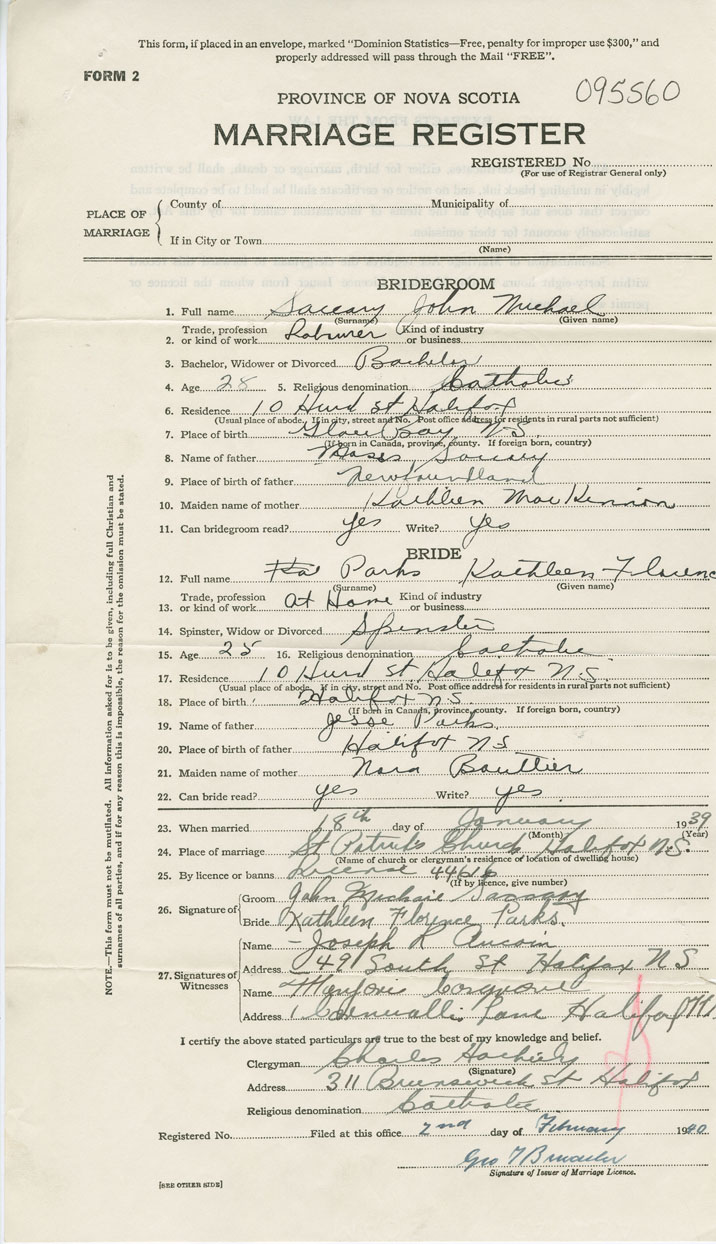 This form, if placed in an envelope, marked "Dominion Statistics—Free, penalty for improper use $300," and
properly addressed will pass through the Mail "FREE".
FORM 2
095560
PROVINCE OF NOVA SCOTIA
MARRIAGE REGISTER
REGISTERED No.
(For use of Registrar General only)
PLACE OF MARRIAGE
County of Municipality of
If in City or Town
(Name)
BRIDEGROOM
1. Full name Saccary John Michael
(Surname) (Given name)
Trade, profession Kind of industry
2. or kind of work Labourer or business
3. Bachelor, Widower or Divorced Bachelor
4. Age 28 5. Religious denomination Catholic
6. Residence 10 Hurd St Halifax
(Usual place of abode. If in city, street and No. Post office address for residents in rural parts not sufficient)
7. Place of birth Glace Bay N.S.
(If born in Canada, province, county. If foreign born, country)
8. Name of father Moses Saccary
9. Place of birth of father Newfoundland
10. Maiden name of mother Kathleen MacKinnon
11. Can bridegroom read? yes Write? yes
BRIDE
12. Full name Parks Kathleen Florenc
(Surname) (Given name)
Trade, profession Kind of industry
13. or kind of work At Home or business
14. Spinster, Widow or Divorced Spinster
15. Age 25 16. Religious denomination Catholic
17. Residence 10 Hurd St Halifax N.S.
(Usual place of abode. If in city, street and No. Post office address for residents in rural parts not sufficient)
18. Place of birth Halifax N.S.
(If born in Canada, province, county. If foreign born, country)
19. Name of father Jesse Parks
20. Place of birth of father Halifax NS
21. Maiden name of mother Nora Boutlier
22. Can bride read? yes Write? yes
23. When married 18th day of January 1939
(Month) (Year)
24. Place of marriage St Patrick's Church Halifax N.S.
(Name of church or clergyman's residence or location of dwelling house)
25. By licence or banns License 44616
(If by licence, give number)
26. Signature of
Groom John Michael Saccary
Bride Kathleen Florence Parks.
27. Signatures of Witnesses
Name Joseph R Aucoin
Address 49 South St Halifax NS
Name Marjorie Cosgrove
Address 1 Cornwallis Lane Halifax
I certify the above stated particulars are true to the best of my knowledge and belief.
Clergyman Charles
(Signature)
Address 311 Brunswick St Halifax
Religious denomination Catholic
Registered No. Filed at this office 2nd day of February 1940
Geo T
Signature of Issuer of Marriage Licence.
[SEE OTHER SIDE]
NOTE.—This form must not be mutilated. All information asked for is to be given, including full Christian and
surnames of all parties, and if for any reason this is impossible, the reason for the omission must be stated.